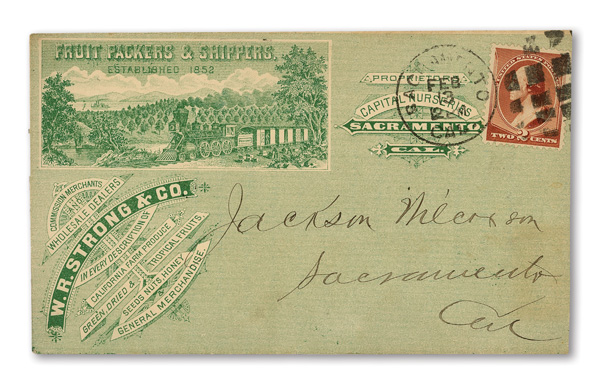 FRUIT PACKERS & SHIPPERS.
ESTABLISHED 1852
PROPRIETORS
CAPITAL NURSERIES
SACRAMENTO,
CAL.
SACRAMENTO
FEB
UNITED STATES
TWO 2 CENTS
COMMISSION MERCHANTS
AND
WHOLESALE DEALERS
W. R. STRONG & CO.
IN EVERY DESCRIPTION OF
CALIFORNIA FARM PRODUCE
GREEN, DRIED & TROPICAL FRUITS,
SEEDS, NUTS, HONEY
&
GENERAL MERCHANDISE.
Jackson Wilcoxson
Sacramento
Cal